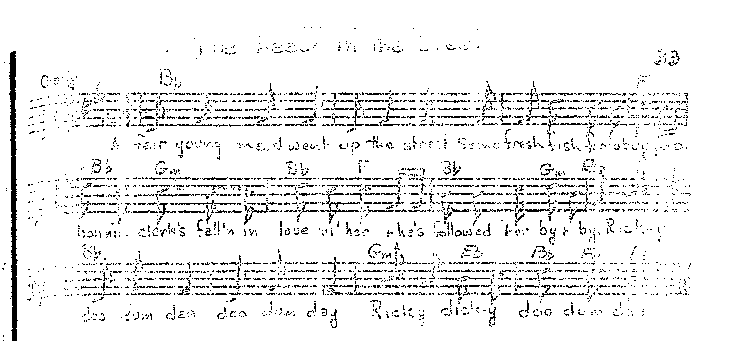 The Keach in the Creel
313
Bb
A fair young maid went up the street Some fresh fish for to buy and a
Bb Gm Bb F Bb Gm
bonnie clerk's fell'n in love wi' her & he's followed her by & by, Rickey
Bb Gm Eb Bb
doo dum dee doo dum day Rickey dickey doo dum day